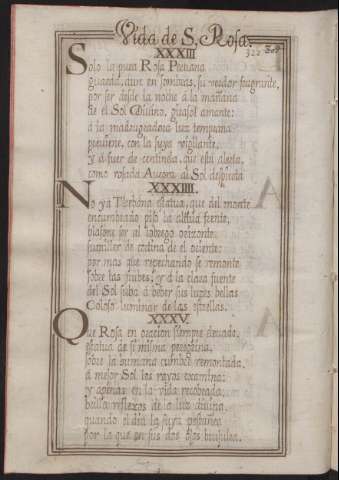 Vida de S. Rosa.
322
XXXIII
Solo la pura Rosa Peruana
guarda, aun en sombras, su verdor fragrante,
por ser desde la noche à la mañana
de el Sol Divino, girasol amante:
à la madrugadora luz temprana
previene, con la suya vigilante,
y à fuer de centinela, que està alerta,
como rosada Aurora al Sol despierta
XXXIIII.
No yà Thebana estatua, que del monte
encumbrado pisò la altiva frente,
blasone ser al lobrego orizonte
sumiller de cortina de el oriente:
por mas que repechando se remonte
sobre las nubes, y à la clara fuente
del Sol suba à beber sus luzes bellas
Coloso luminar de las estrellas.
XXXV
Que Rosa en oracion siempre elevada,
estatua de si misma peregrina,
sobre la humana cumbre remontada,
à mejor Sol los rayos examina:
y apenas en la vida recobrada
brilla reflexos de la luz divina,
quando el dia la suya
por la que ver sus dos ojos